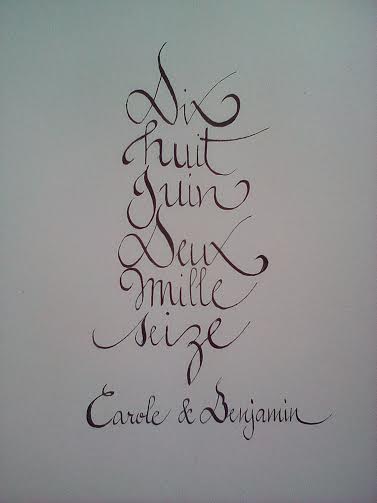 Dix
huit
Juin
Deux
mille
seize
Carole & Benjamin